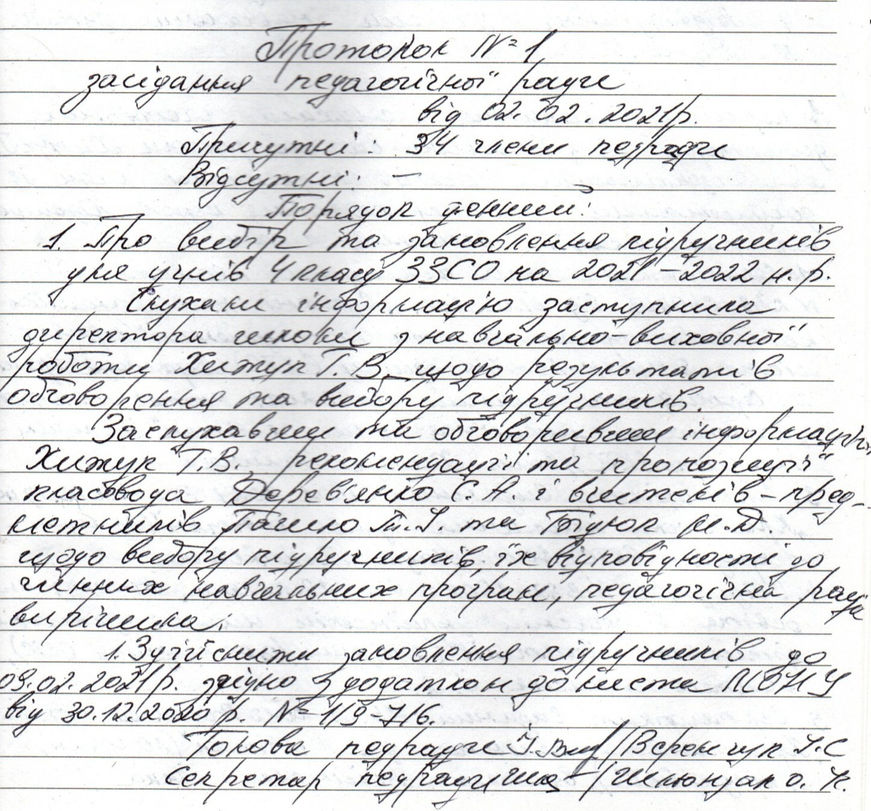 Протокол № 1
засідання педагогічної ради
від 02.02.2021р.
Присутні: 34 члени педради
Відсутні: —
Порядок денний:
1. Про вибір та замовлення підручників
для учнів 4 класу ЗЗСО на 2021–2022 н.р.
Слухали інформацію заступника
директора школи з навчально-виховної
роботи Хижук Т.В. щодо результатів
обговорення та вибору підручників.
Заслухавши та обговоривши інформацію
Хижук Т.В. рекомендації та пропозиції
класовода Дерев'янко С.А. і вчителів-пред-
метників Пашко Т.І. та Бідюк М.Д.
щодо вибору підручників, їх відповідності до
чинних навчальних програм, педагогічна рада
вирішила:
1. Здійснити замовлення підручників до
09.02.2021р. згідно з додатком до листа МОНУ
від 30.12.2020 р. № 1/9-716.
Голова педради /Веремчук І.С
Секретар педради О. К.